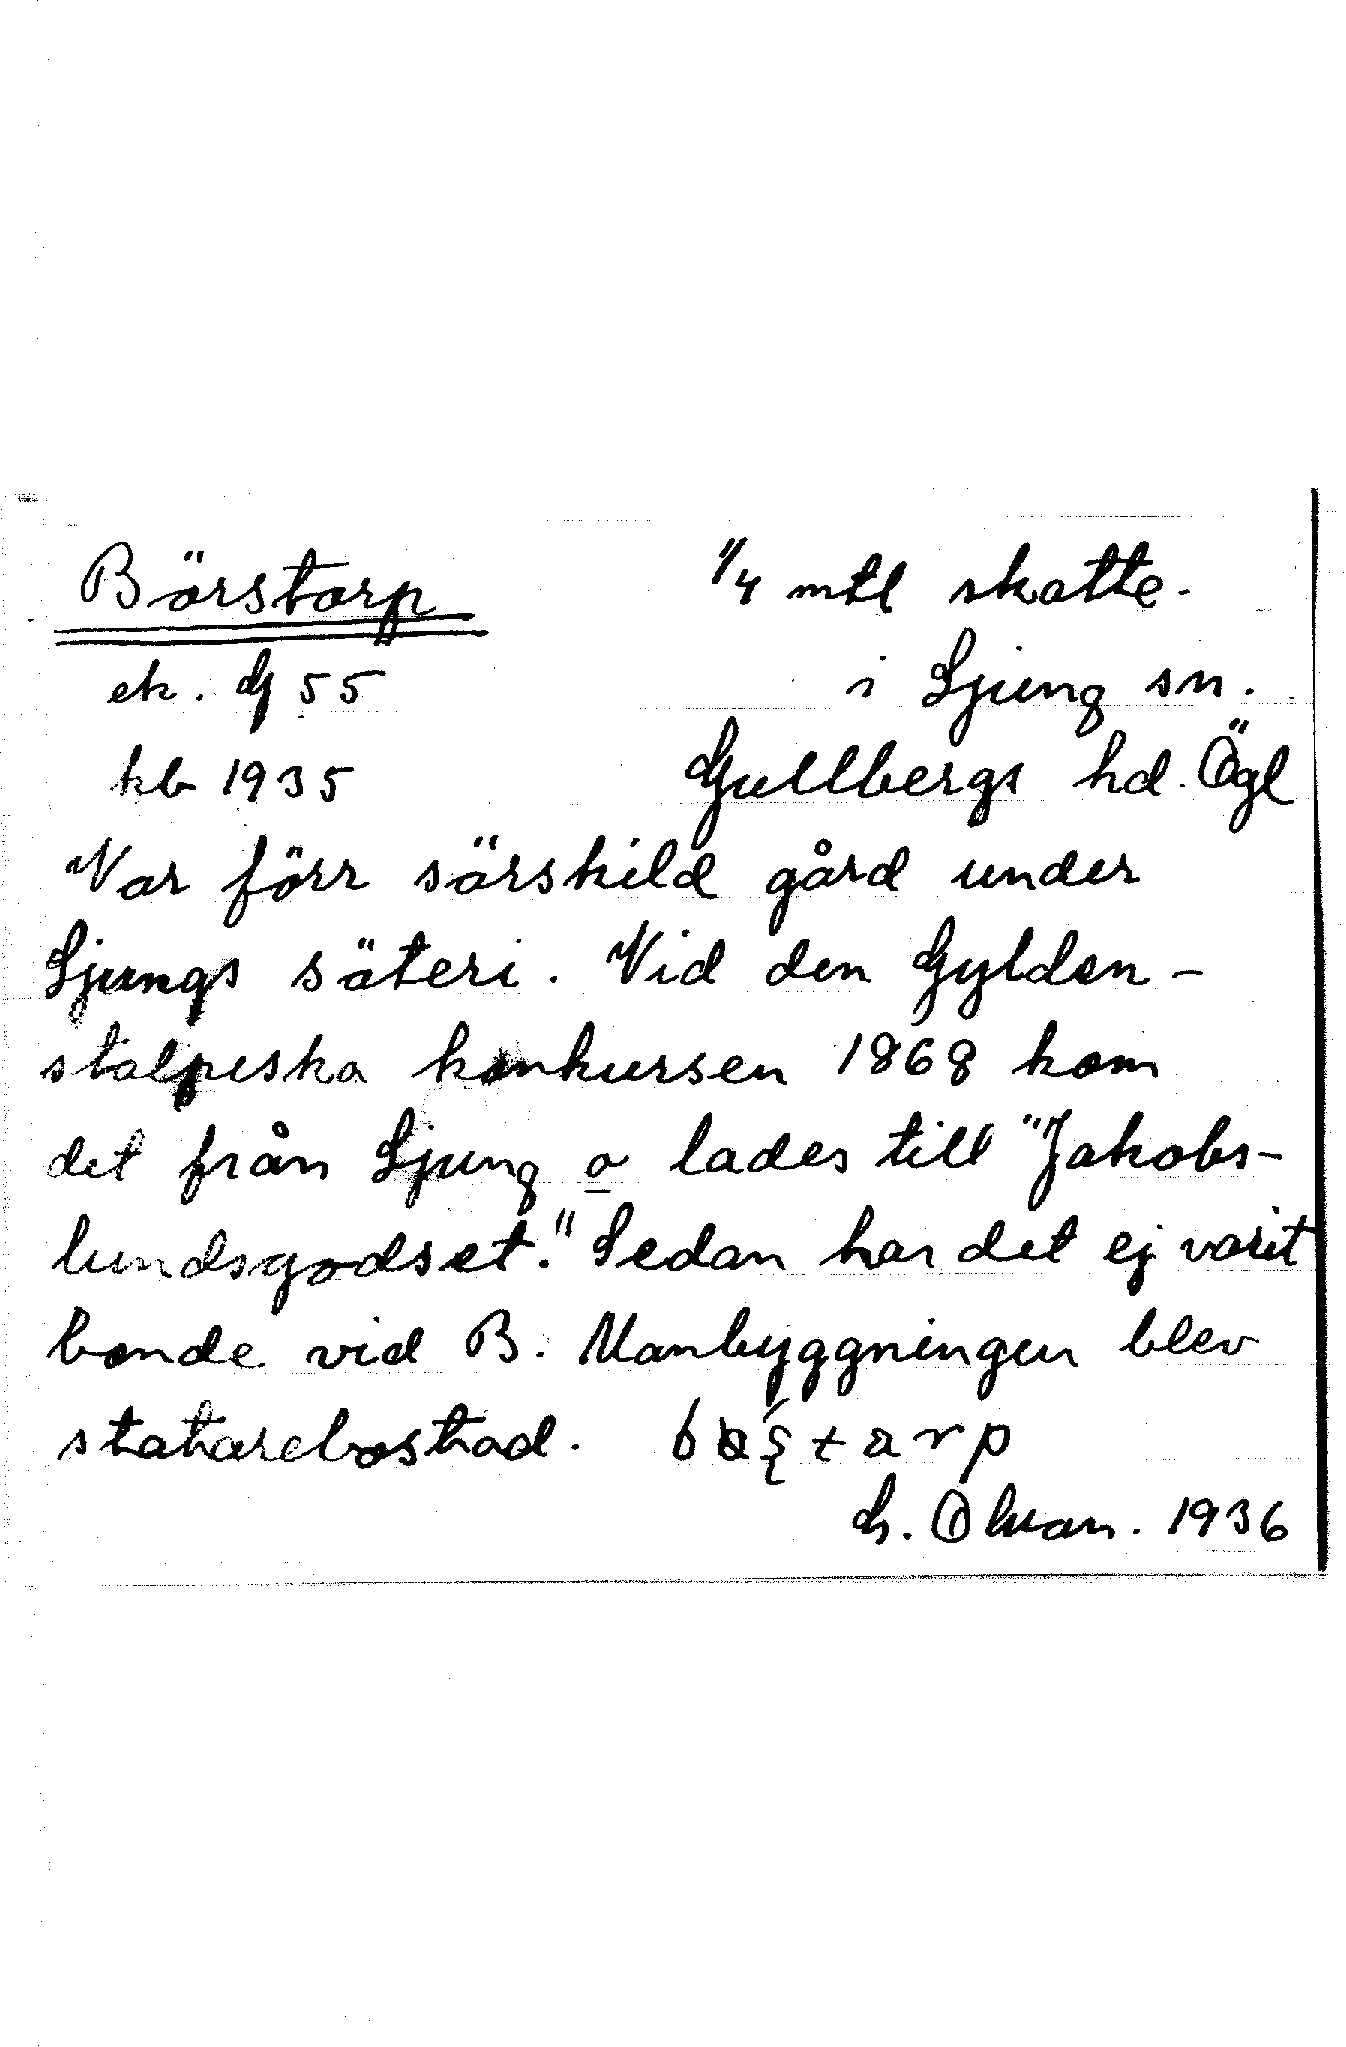 Börstorp 1/4 mtl skatte.
ek. G 55 i Ljung sn.
kb 1935 Gullbergs hd. Ögl
Var förr särskild gård under
Ljungs säteri. Vid den Gylden-
stolpeska konkursen 1868 kom
det från Ljung o lades till "Jakobs-
lundsgodset." Sedan har det ej varit
bonde vid B. Manbyggningen blev
statarebostad.
1936